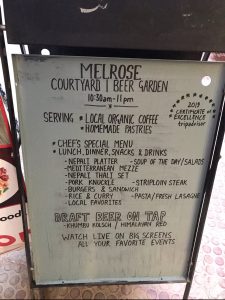 MELROSE
COURTYARD | BEER GARDEN
10:30am - 11pm
2019
CERTIFICATE
EXCELLENCE
tripadvisor
SERVING * LOCAL ORGANIC COFFEE
* HOMEMADE PASTRIES
* CHEF'S SPECIAL MENU
* LUNCH, DINNER, SNACKS & DRINKS
- NEPALI PLATTER - SOUP OF THE DAY/SALADS
- MEDITERRANEAN MEZZE
- NEPALI THALI SET
- PORK KNUCKLE - STRIPLOIN STEAK
- BURGERS & SANDWICH
- RICE & CURRY - PASTA/FRESH LASAGNE
- LOCAL FAVORITES
DRAFT BEER ON TAP
- KHUMBU KOLSCH / HIMALAYAN RED
WATCH LIVE ON BIG SCREENS
ALL YOUR FAVORITE EVENTS